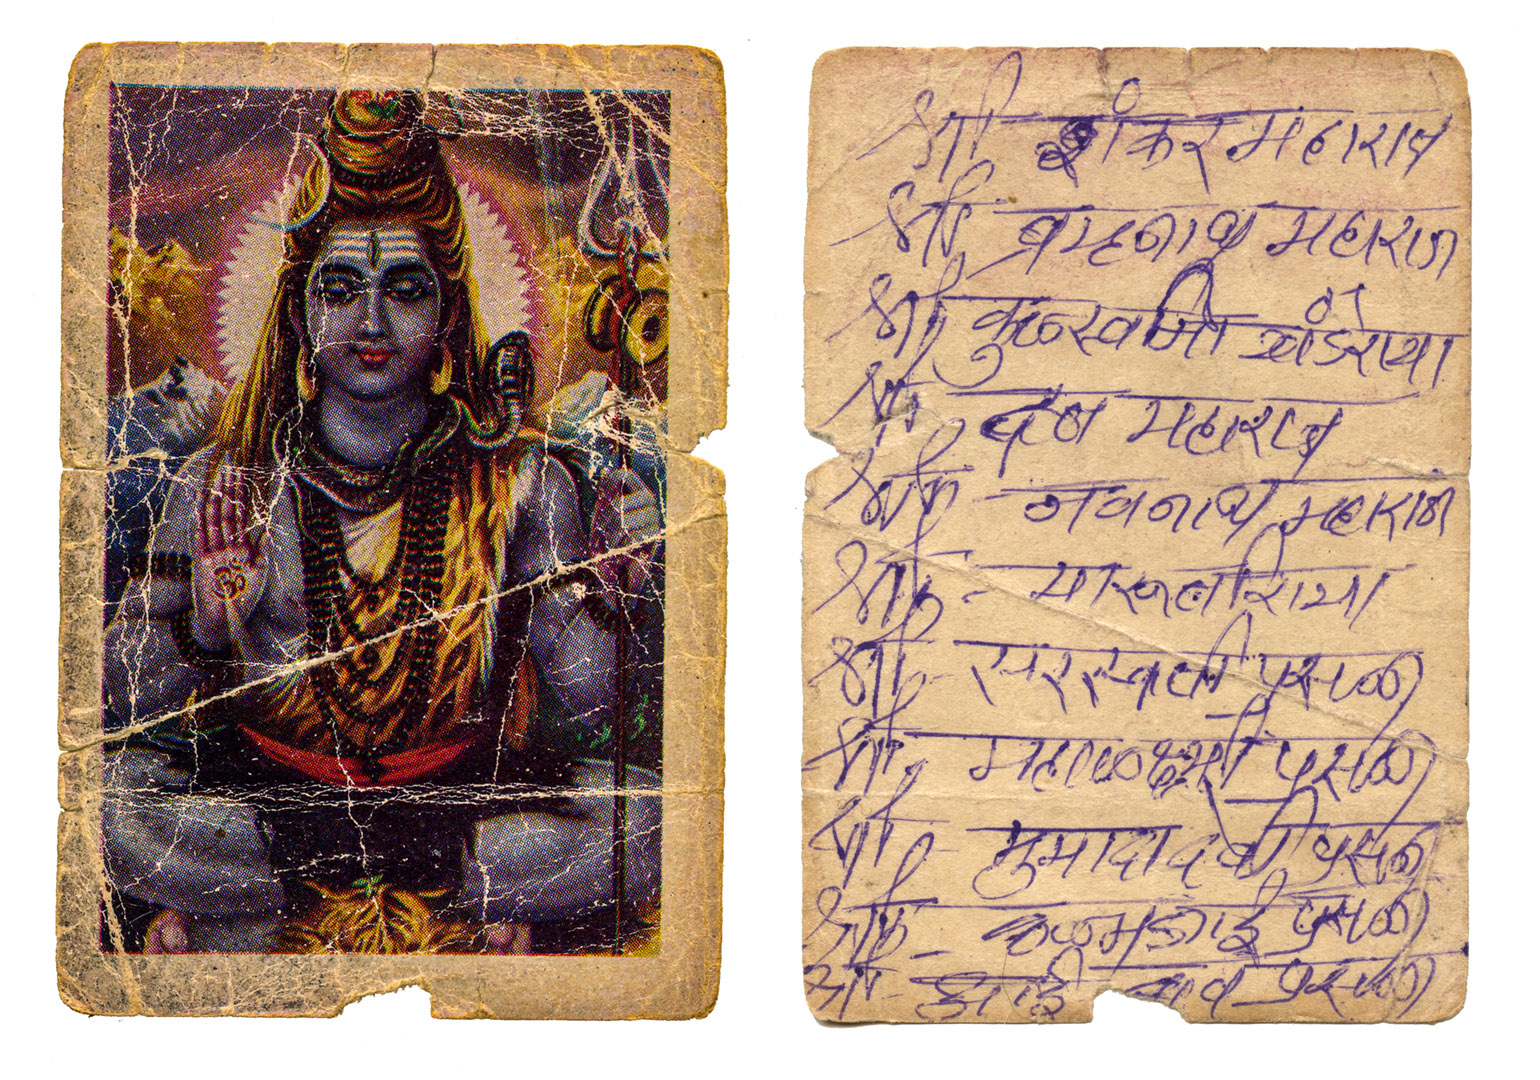 ॐ
श्री शंकर महाराज
श्री ब्रम्हनाथ महाराज
श्री कुळस्वामि खंडेराया
श्री दत्त महाराज
श्री - नवनाथ महाराज
श्री - मारूतीराया
श्री - सरस्वती प्रसन्न
श्री - महालक्ष्मी प्रसन्न
श्री - मुंमादेवी प्रसन्न
श्री - प्रसन्न
श्री - प्रसन्न